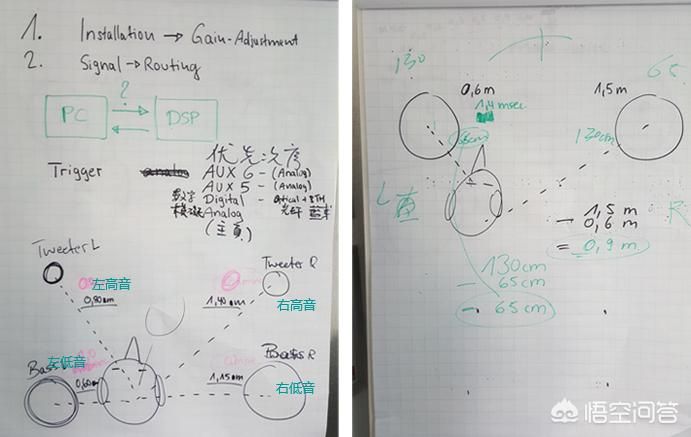 1. Installation → Gain-Adjustment
2. Signal → Routing
?
PC
DSP
优先次序
Trigger
AUX 6 - (Analog)
AUX 5 - (Analog)
数字 Digital - optical + BTH
模拟 Analog 光纤 蓝牙
(主頁)
Tweeter L
Tweeter R
左高音
右高音
0,80
1,40
左低音
Bass R
0,60
1,15
右低音
130
65
0,6m
1,5m
1,4 msec
65cm
130cm
L
R
1,5 m
- 0,6 m
= 0,9 m
130cm
- 65cm
- 65cm
悟空问答